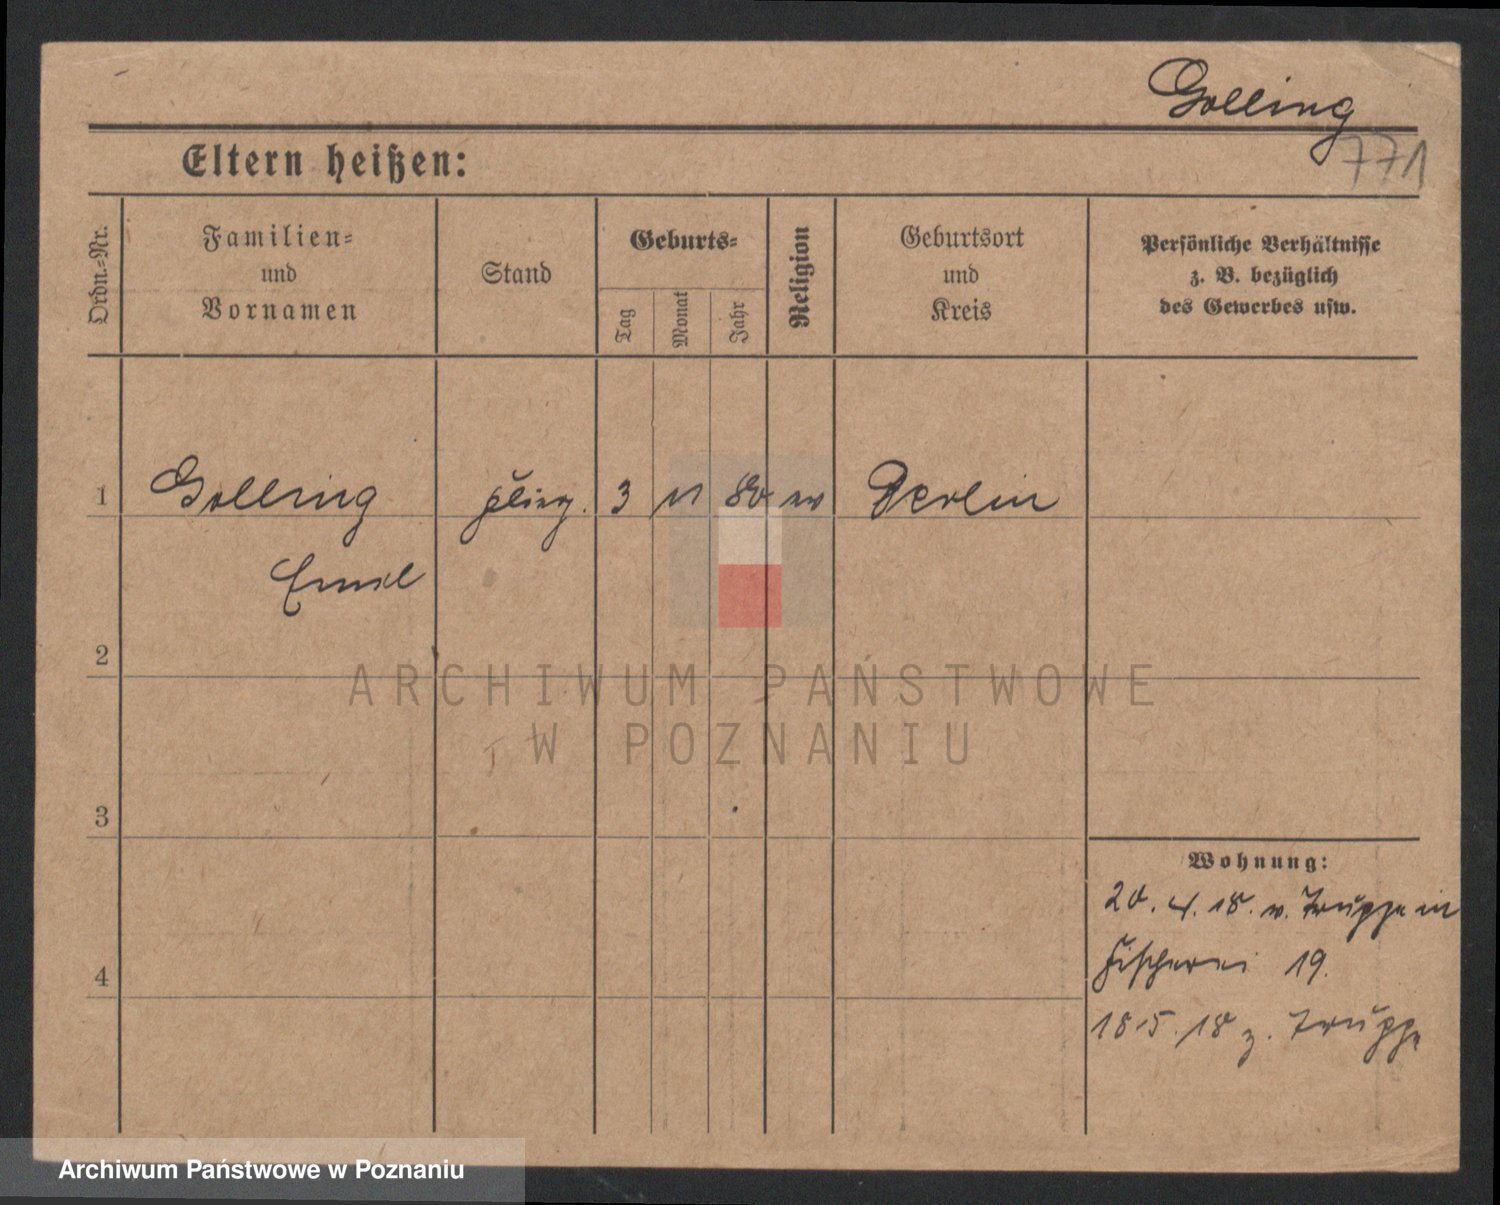 Golling
771
Eltern heißen:
Ordn.=Nr.
Familien=
und
Vornamen
Stand
Geburts=
Tag
Monat
Jahr
Religion
Geburtsort
und
Kreis
Persönliche Verhältnisse
z. B. bezüglich
des Gewerbes usw.
1 Golling 3 80 ev Berlin
Emil
2
ARCHIWUM PAŃSTWOWE
W POZNANIU
3
Wohnung:
20. 4. 18. v. Truppe in
Fischerei 19.
4
18.5.18 z. Truppe
Archiwum Państwowe w Poznaniu